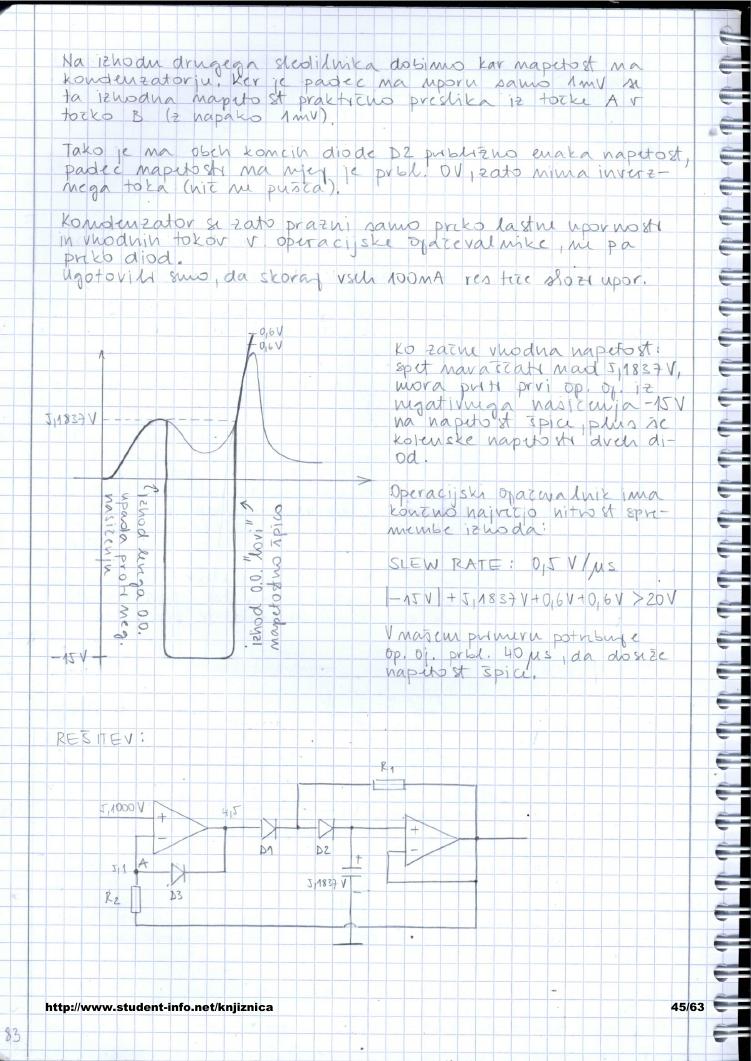 Na izhodu drugega sledilnika dobimo kar napetost na
kondenzatorju. Ker je padec na uporu samo 1mV se
ta izhodna napetost praktično preslika iz točke A v
točko B (z napako 1mV).
Tako je na obeh koncih diode D2 približno enaka napetost,
padec napetosti na njej je prbl. 0V, zato nima inverz-
nega toka (nič ne pušča).
Kondenzator se zato prazni samo preko lastne upornosti
in vhodnih tokov v operacijske ojačevalnike, ne pa
preko diod.
Ugotovili smo, da skoraj vseh 100mA res teče skozi upor.
0,6V
0,6V
5,1837V
-15V
izhod levega O.O.
upada proti neg.
nasičenju
"prvi" O.O. ponzi
Ko začne vhodna napetost
spet naraščati nad 5,1837V,
mora priti prvi op. oj. iz
negativnega nasičenja -15V
na napetost špice, plus še
kolenske napetosti dveh di-
od.
Operacijski ojačevalnik ima
končno največjo hitrost spre-
membe izhoda:
SLEW RATE: 0,5 V/μs
|-15V| + 5,1837V+0,6V+0,6V >20V
V našem primeru potrebuje
op. oj. prbl. 40μs, da doseže
napetost špice.
REŠITEV:
R1
5,1000V
4,5
+
-
D1
D2
+
-
5,1
A
D3
R2
+
5,1837V
-
http://www.student-info.net/knjiznica
45/63
83